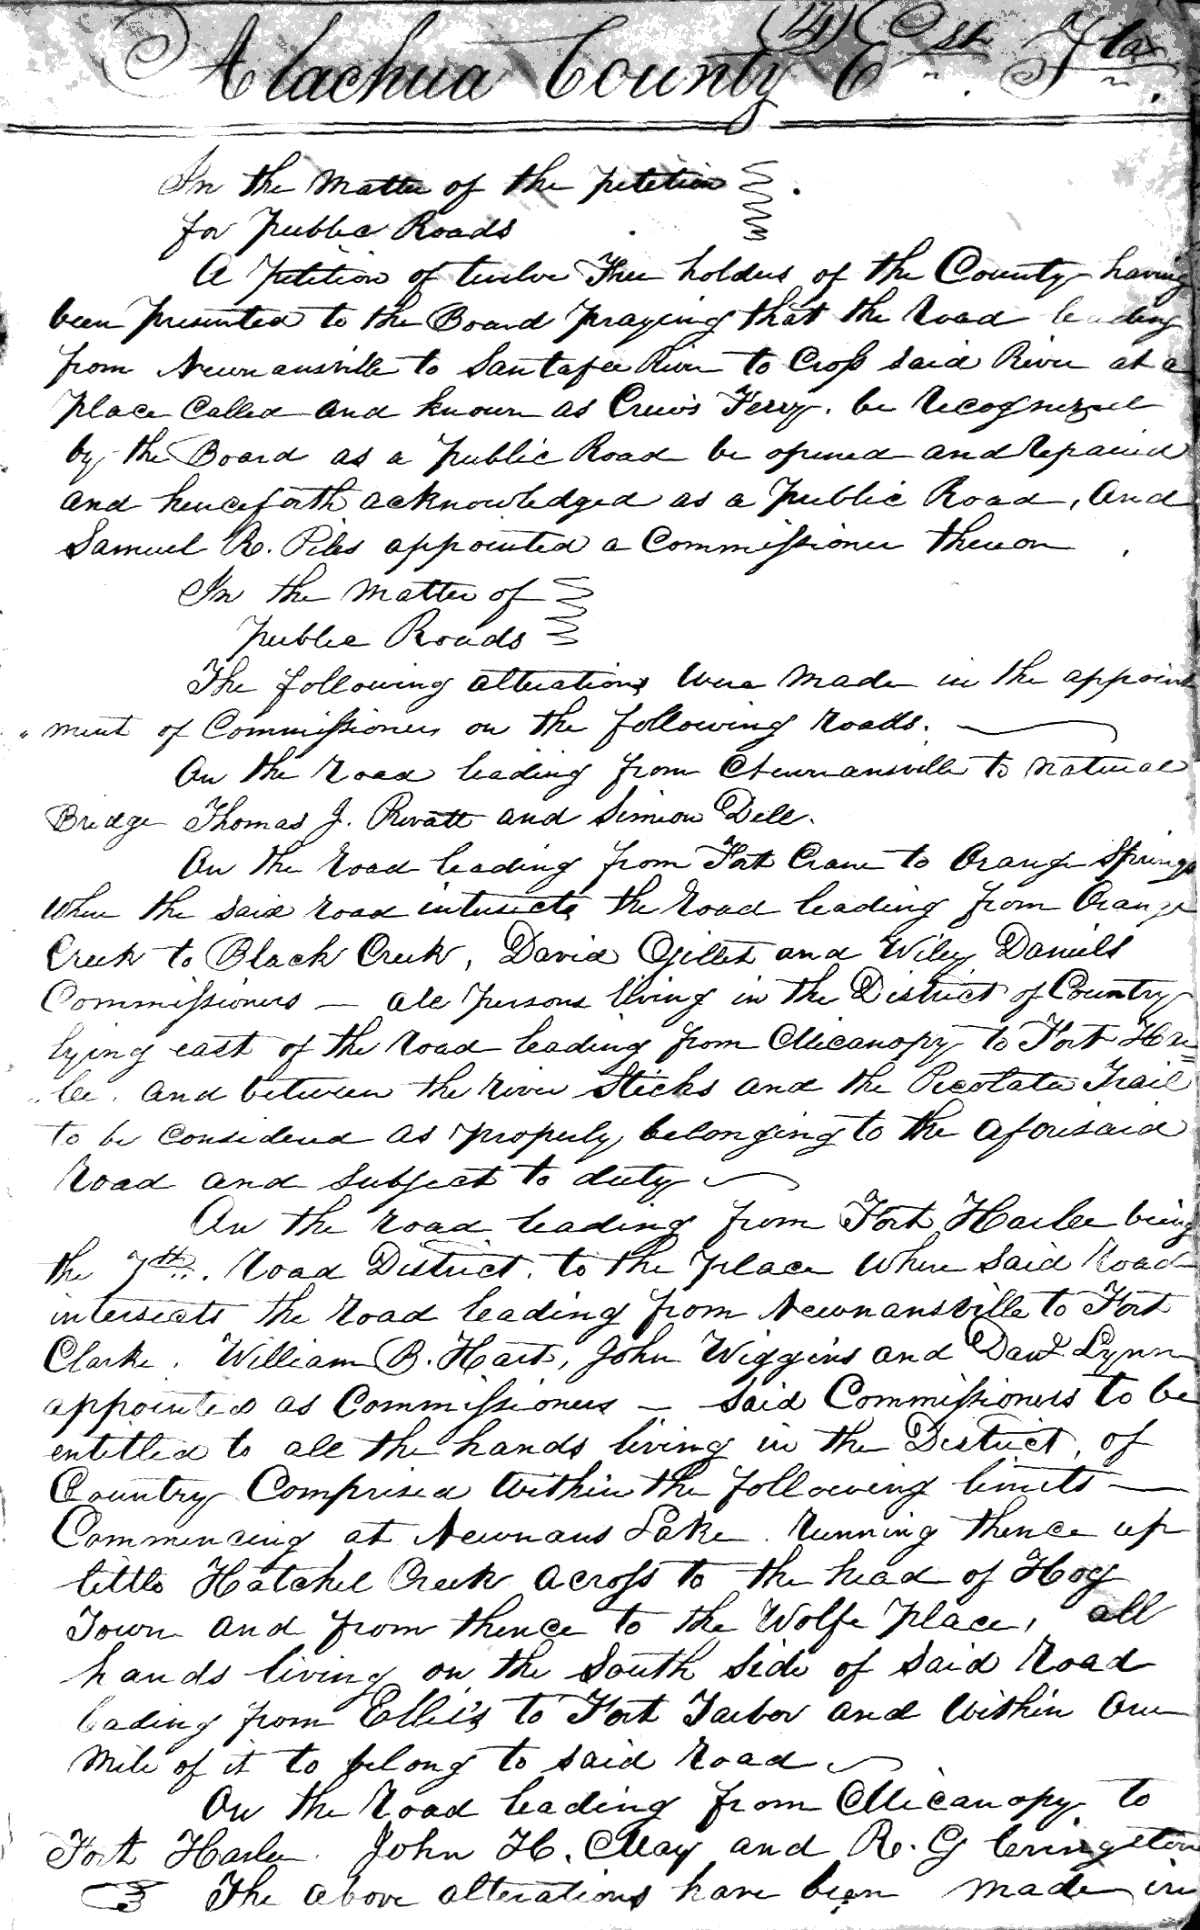 (14)
Alachua County E. Flas.
In the Matter of the petition
for Public Roads
A Petition of twelve Free holders of the County having
been Presented to the Board Praying that the Road leading
from Newnansville to Santafee River to Cross said River at a
Place Called and known as Crews Ferry. be Recognized
by the Board as a Public Road be opened and Repaired
and henceforth acknowledged as a Public Road, and
Samuel R. Piles appointed a Commissioner thereon
In the Matter of
Public Roads
The following alterations were made in the appoint
ment of Commissioners on the following roads.
On the road leading from Newnansville to natural
Bridge Thomas J. and Simeon Dell.
On the road leading from Fort Crane to Orange Springs
where the said road intersects the road leading from Orange
Creek to Black Creek, David Gillet and Wiley Daniels
Commissioners — all persons living in the District of Country
lying east of the road leading from Micanopy to Fort Har
lee. and between the river Sticks and the Picolata Trail
to be considered as properly belonging to the aforesaid
road and subject to duty
On the road leading from Fort Harlee being
the 7th. Road District. to the Place where said road
intersects the road leading from Newnansville to Fort
Clarke. William B. Hart, John Wiggins and Danl Lynn
appointed as Commissioners — said Commissioners to be
entitled to all the hands living in the District, of
Country Comprised within the following limits —
Commencing at Newnans Lake. running thence up
little Hatchel Creek across to the head of Hog
Town and from thence to the Wolfe Place, all
hands living on the South Side of said road
leading from Ellis's to Fort Tarbor and within one
mile of it to belong to said road
On the road leading from Micanopy to
Fort Harlee. John H. May and R. G Livingston
The above alterations have been made in